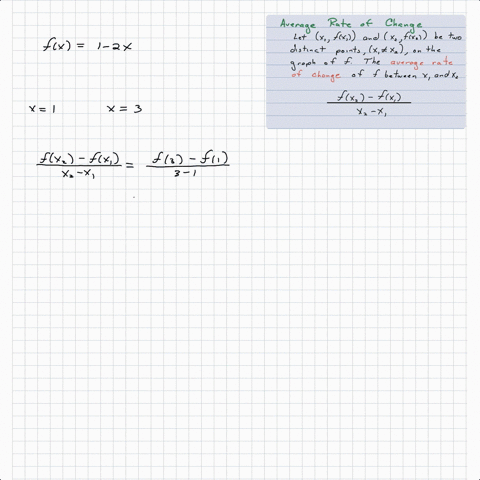 f(x) = 1-2x
x = 1 x = 3
f(x₂) - f(x₁) / x₂ - x₁ = f(3) - f(1) / 3 - 1
Average Rate of Change
Let (x₁, f(x₁)) and (x₂, f(x₂)) be two
distinct points, (x₁ ≠ x₂), on the
graph of f. The average rate
of change of f between x₁ and x₂
f(x₂) - f(x₁) / x₂ - x₁